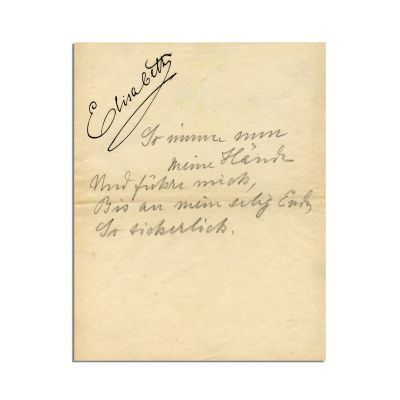 Elisabeth
So nimm nun
meine Hände
Und führe mich,
Bis an mein selig Ende,
So sickerlich.